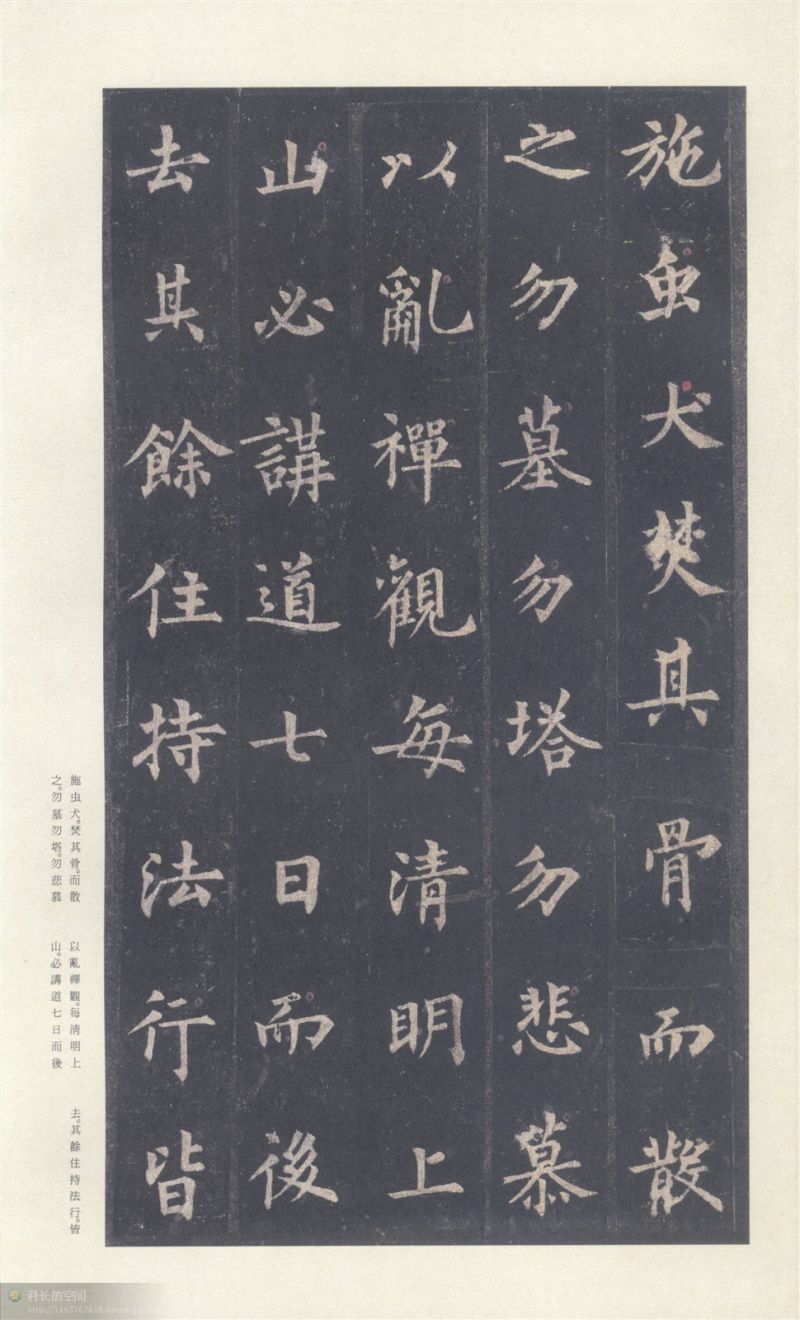 施虫犬焚其骨而散
之勿墓勿塔勿悲慕
以亂禪觀每清明上
山必講道七日而後
去其餘住持法行皆
施虫犬。焚其骨。而散
之。勿墓勿塔。勿悲慕
以亂禪觀。每清明上
山。必講道七日而後
去。其餘住持法行。皆
科长的空间